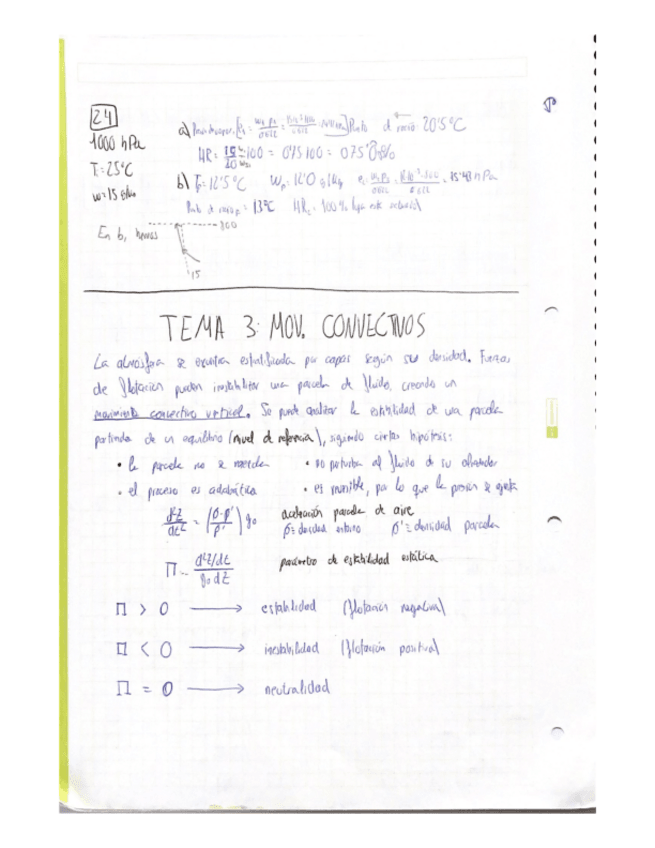 24
1000 hPa
T = 25°C
w = 15 g/kg
a) Punto de rocío: 20'5°C
HR = 15/20 · 100 = 0'75 · 100 =
b) T = 12'5°C w = 12'0 g/kg = 15'43 hPa
Punto de rocío = 13°C HR = 100%
En b, hemos
800
15
TEMA 3: MOV. CONVECTIVOS
La atmósfera se encuentra estratificada por capas según su densidad. Fuerzas
de flotación pueden inestabilizar una parcela de fluido, creando un
movimiento convectivo vertical. Se puede analizar la estabilidad de una parcela
partiendo de un equilibrio (nivel de referencia), siguiendo ciertas hipótesis:
• la parcela no se mezcla • no perturba al fluido de su alrededor
• el proceso es adiabático • es reversible, por lo que la presión se ajusta
d²z/dt² = (ρ-ρ'/ρ') g₀ aceleración parcela de aire
ρ = densidad entorno ρ' = densidad parcela
Π = d²z/dt / g₀ dz parámetro de estabilidad estática
Π > 0 → estabilidad (flotación negativa)
Π < 0 → inestabilidad (flotación positiva)
Π = 0 → neutralidad